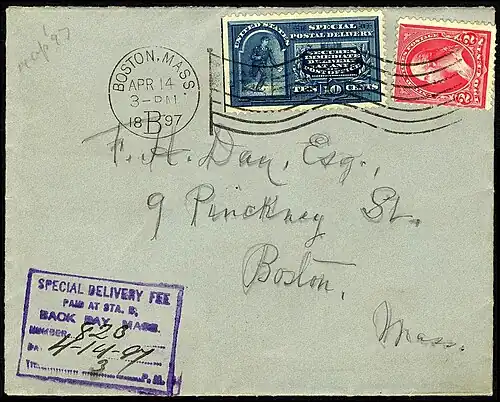 recep't '97
BOSTON, MASS.
APR 14
3-PM
18 B 97
UNITED STATES
SPECIAL
POSTAL DELIVERY
SECURES
IMMEDIATE
DELIVERY
AT ANY
POST OFFICE
TEN 10 CENTS
2 2
F. A. Day, Esq.,
9 Pinckney St.
Boston,
Mass.
SPECIAL DELIVERY FEE
PAID AT STA. B,
BACK BAY, MASS.
NUMBER 828
4-14-97
3 P.M.